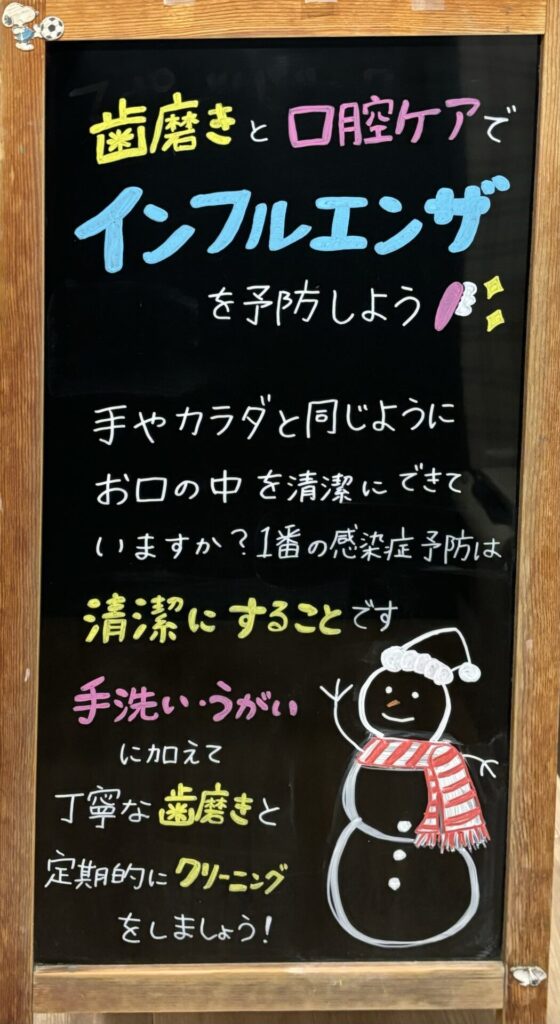 歯磨きと口腔ケアで
インフルエンザ
を予防しよう
手やカラダと同じように
お口の中を清潔にできて
いますか?1番の感染症予防は
清潔にすることです
手洗い・うがい
に加えて
丁寧な歯磨きと
定期的にクリーニング
をしましょう!